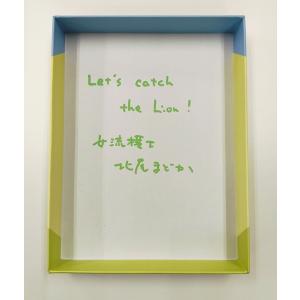 Let's catch
the Lion!
女流棋士
北尾まどか